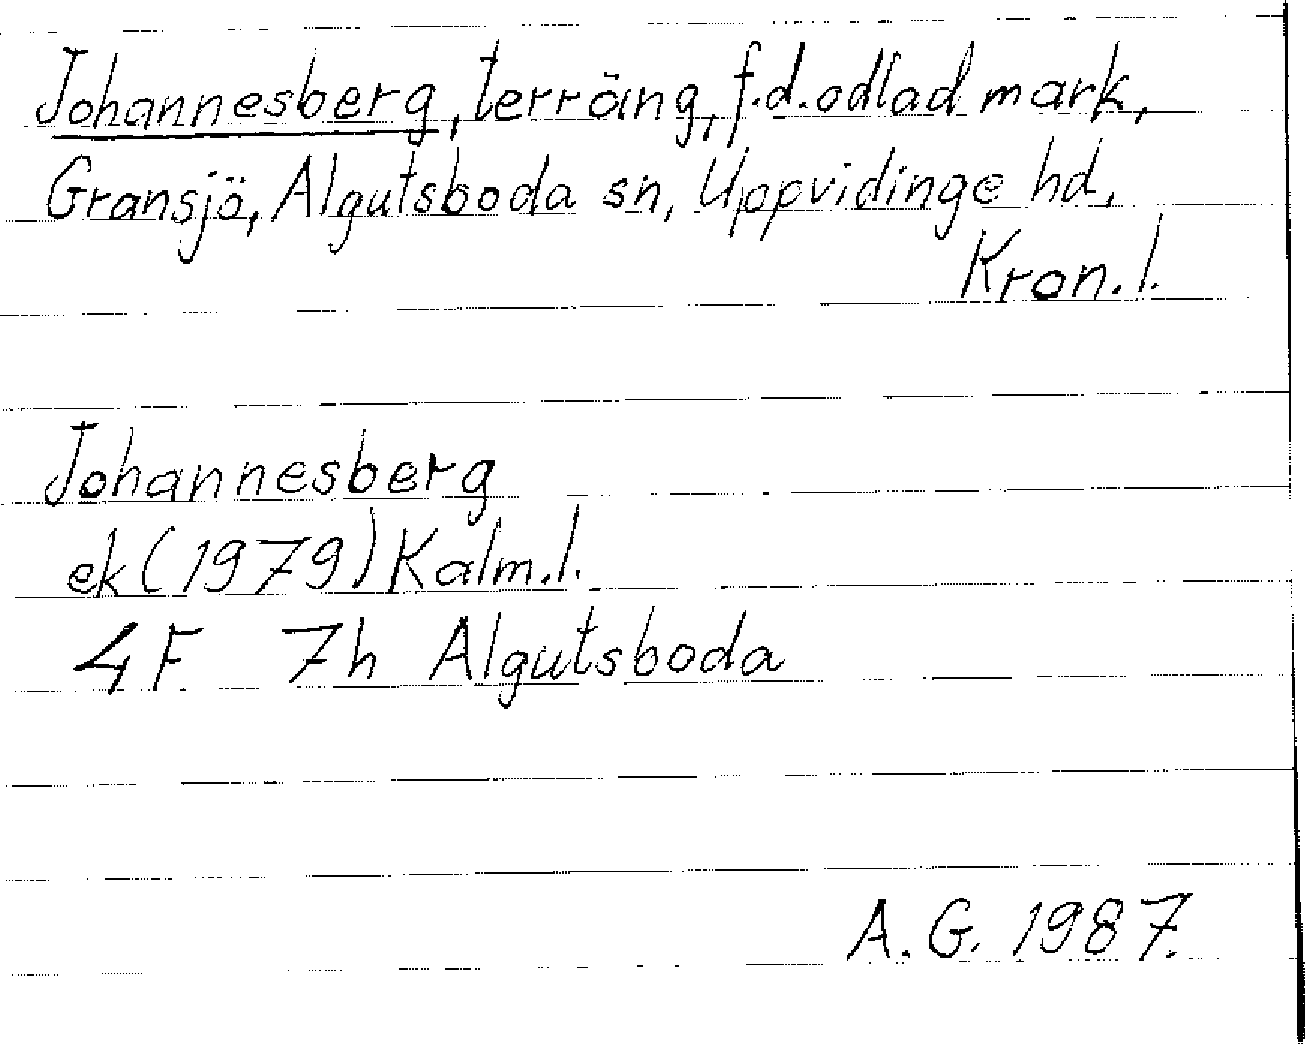 Johannesberg, terräng, f.d. odlad mark,
Gransjö, Algutsboda sn, Uppvidinge hd,
Kron. l.
Johannesberg
ek (1979) Kalm. l.
4F 7h Algutsboda
A. G. 1987.